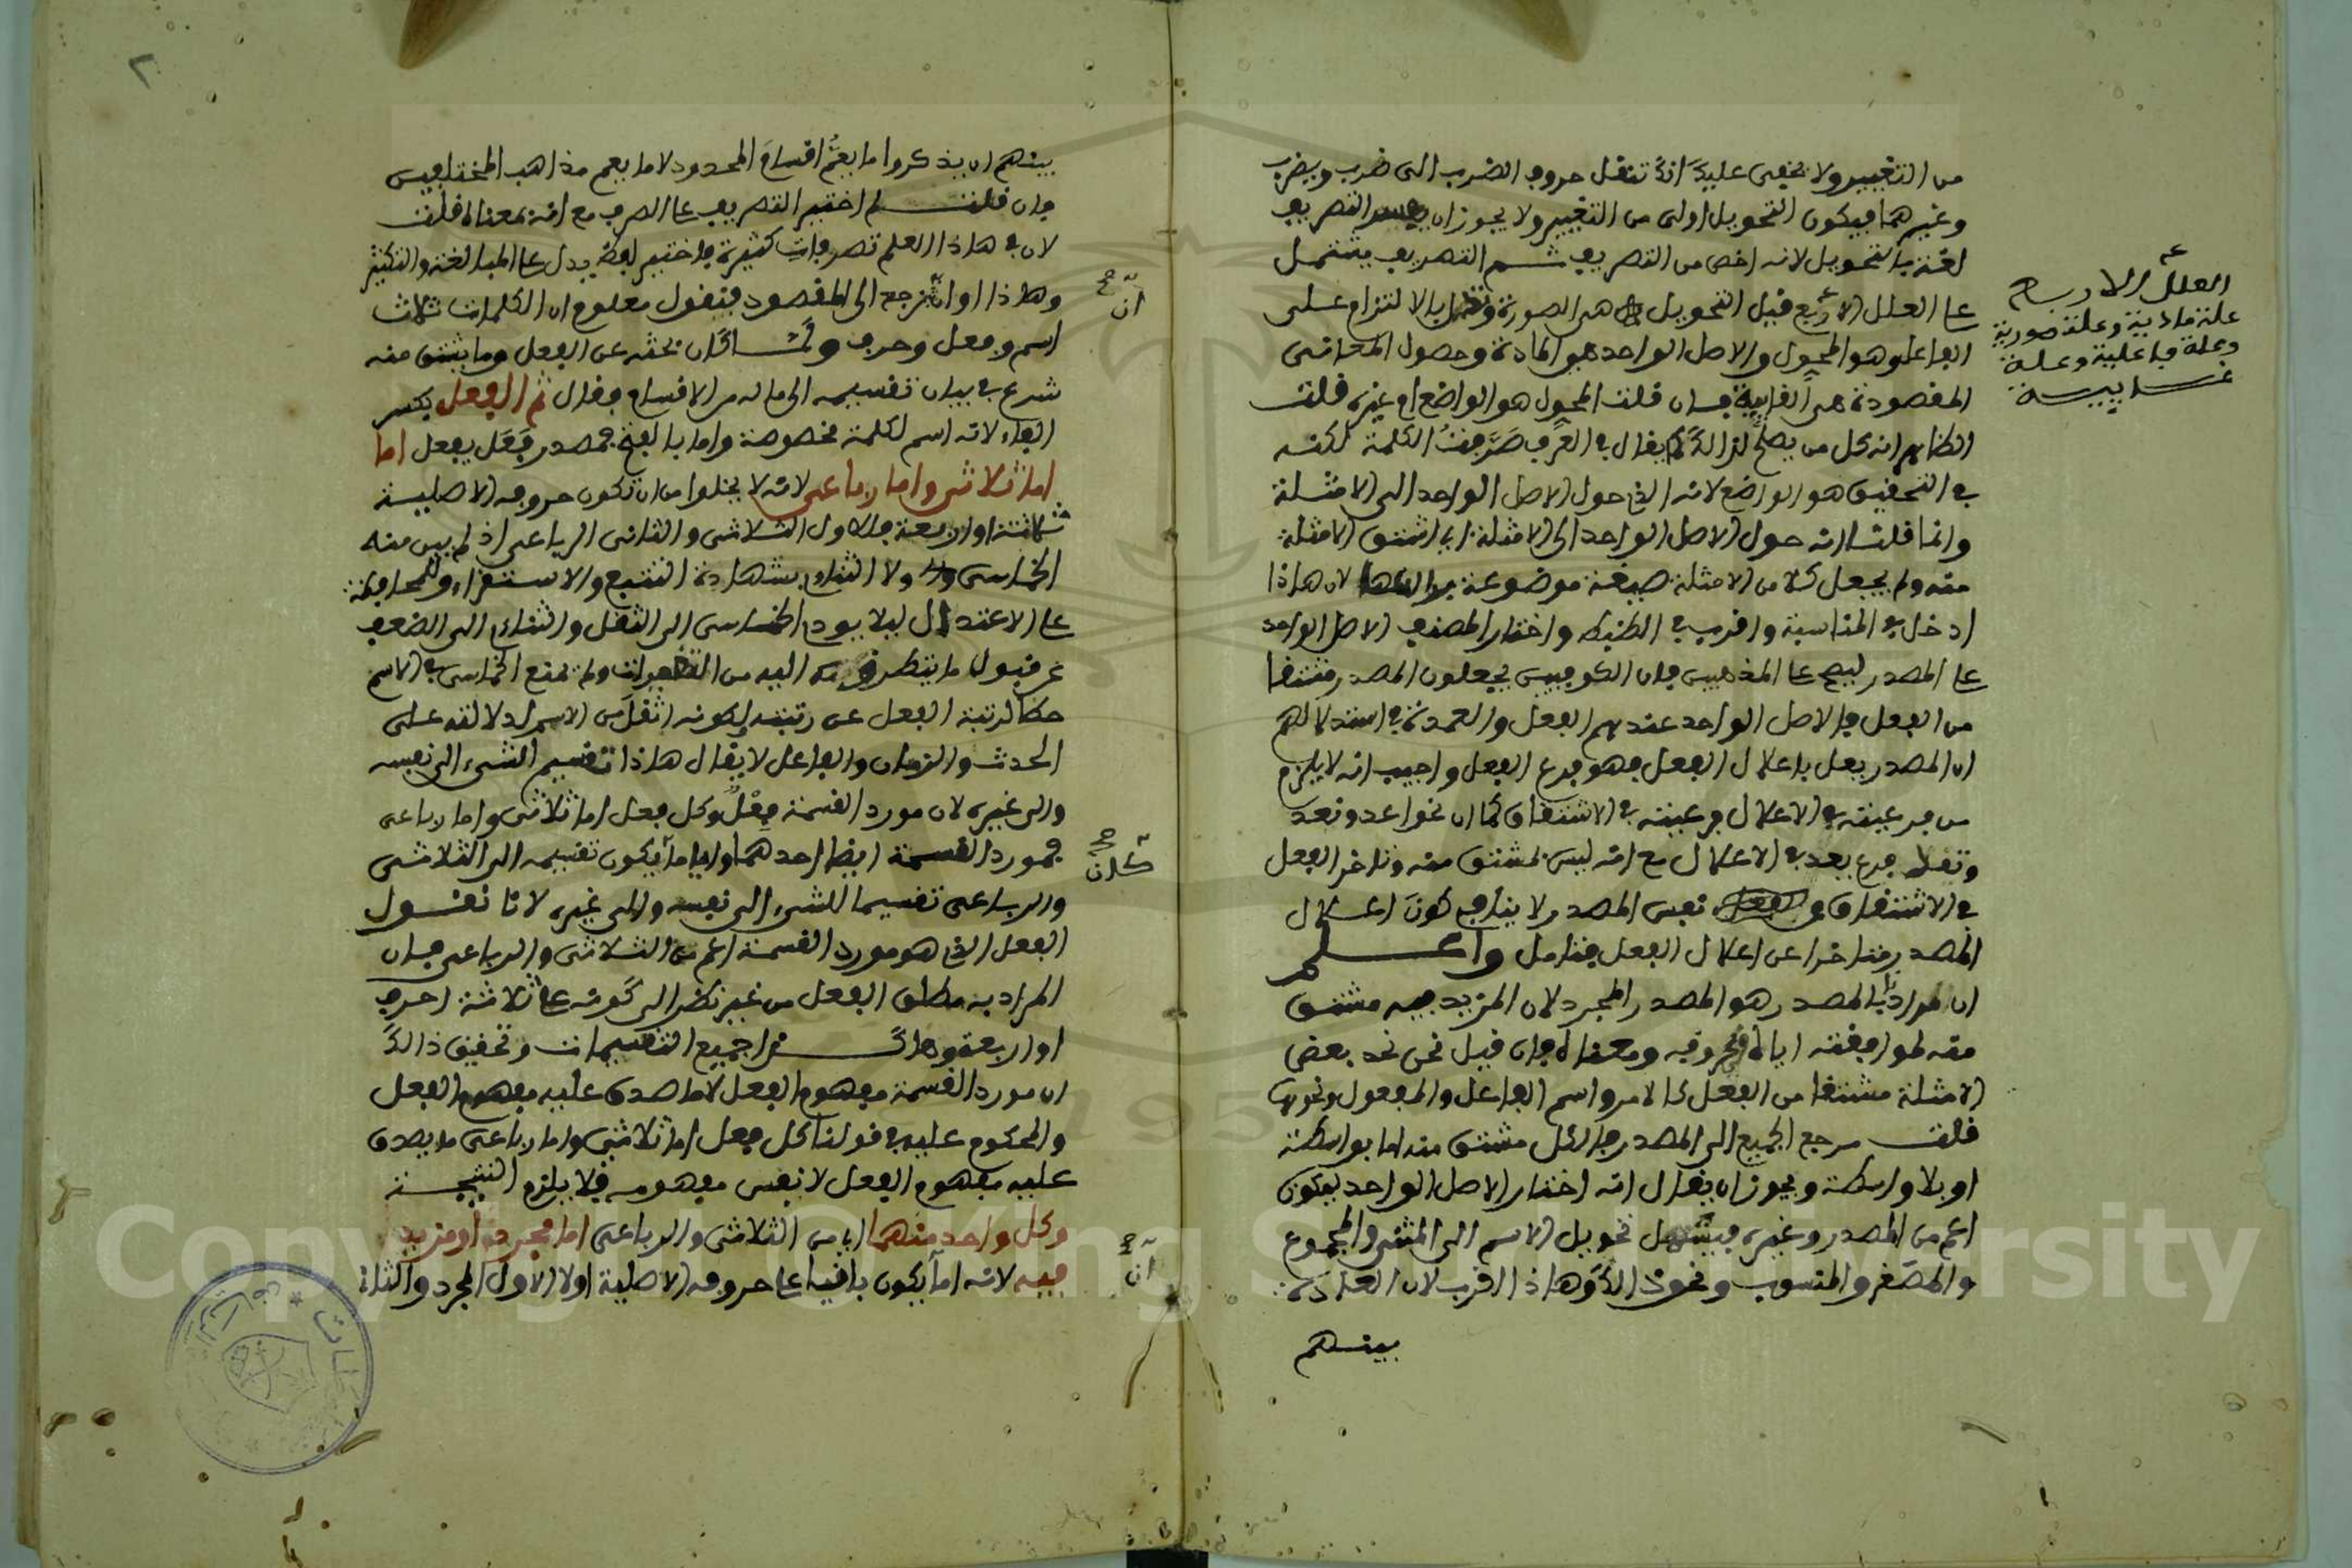 من التغيير ولا يخفى عليك انك تنقل حروف الضرب الى ضرب ويضرب
وغيرهما فيكون التحويل اولى من التغيير ولا يجوز ان يفسر التصريف
لغة بالتحويل لانه اخص من التصريف ثم التصريف يشتمل
على العلل الاربع قيل التحويل هي الصورة وتدل بالالتزام على
الفاعل وهو المحول والاصل الواحد هو المادة وحصول المعاني
المقصودة هي الغاية فان قلت المحول هو الواضع ام غيره قلت
الظاهر انه كل من يصلح لذالك كما يقال في العرف صرفت الكلمة لكنه
في التحقيق هو الواضع لانه الذي حول الاصل الواحد الى الامثلة
وانما قلنا انه حول الاصل الواحد الى الامثلة اي اشتق الامثلة
منه ولم يجعل كلا من الامثلة صيغة موضوعة لان هاذا
ادخل في المناسبة واقرب الى الضبط واختار المصنف الاصل الواحد
على المصدر ليصح على المذهبين فان الكوفيين يجعلون المصدر مشتقا
من الفعل فالاصل الواحد عندهم الفعل والعمدة في استدلالهم
ان المصدر يعل باعلال الفعل فهو فرع الفعل واجيب انه لا يلزم
من فرعيته في الاعلال فرعيته في الاشتقاق كما ان نحو اعد ونعد
وتعد فرع يعد في الاعلال مع انه ليس بمشتق منه وتاخر الفعل
في الاشتقاق عن نفس المصدر لا ينافي كون اعلال
المصدر متاخرا عن اعلال الفعل فتامل واعلم
ان المراد بالمصدر هو المصدر المجرد لان المزيد فيه مشتق
منه لموافقته اياه بحروفه ومعناه فان قيل نحن نجد بعض
الامثلة مشتقا من الفعل كالامر واسم الفاعل والمفعول ونحوها
قلت مرجع الجميع الى المصدر فالكل مشتق منه اما بواسطة
او بلا واسطة ويجوز ان يقال انه اختار الاصل الواحد ليكون
اعم من المصدر وغيره فيشمل تحويل الاسم الى المثنى والمجموع
والمصغر والمنسوب ونحو ذالك وهاذا اقرب لان العادة
بينهم
العلل الاربع
علة مادية وعلة صورية
وعلة فاعلية وعلة
غايية
٢
بينهم ان يذكروا ما يعم اقسام المحدود لا ما يعم مذاهب المختلفين
فان قلت لم اختير التصريف على الصرف مع انه بمعناه قلت
لان في هاذا العلم تصرفات كثيرة فاختير لفظ يدل على المبالغة والتكثير
وهاذا اوان نرجع الى المقصود فنقول معلوم ان الكلمات ثلاث
اسم وفعل وحرف ولما كان بحثه عن الفعل وما يشتق منه
شرع في بيان تقسيمه الى ماله من الاقسام فقال ثم الفعل بكسر
الفاء لانه اسم لكلمة مخصوصة واما بالفتح فمصدر فعل يفعل اما
اما ثلاثي واما رباعي لانه لا يخلوا من ان تكون حروفه الاصلية
ثلاثة او اربعة فالاول الثلاثي والثاني الرباعي اذ لم يبن منه
الخماسي ولا الثناي بشهادة التتبع والاستقراء وللمحافظة
على الاعتدال ليلا يودي الخماسي الى الثقل والثناي الى الضعف
عن قبول ما يتطرق اليه من التغييرات ولم يمنع الخماسي في الاسم
حطا لرتبة الفعل عن رتبته لكونه اثقل من الاسم لدلالته على
الحدث والزمان والفاعل لا يقال هاذا تقسيم الشيء الى نفسه
والى غيره لان مورد القسمة فعل وكل فعل اما ثلاثي واما رباعي
فمورد القسمة ايضا احدهما وايا ما يكون تقسيمه الى الثلاثي
والرباعي تقسيما للشيء الى نفسه والى غيره لانا نقول
الفعل الذي هو مورد القسمة اعم من الثلاثي والرباعي فان
المراد به مطلق الفعل من غير نظر الى كونه على ثلاثة احرف
او اربعة وهاكذا جميع التقسيمات وتحقيق ذالك
ان مورد القسمة مفهوم الفعل لا ما صدق عليه مفهوم الفعل
والمحكوم عليه في قولنا كل فعل اما ثلاثي واما رباعي ما يصدق
عليه مفهوم الفعل لا نفس مفهومه فلا يلزم النتيجة
وكل واحد منهما اي من الثلاثي والرباعي اما مجرد او مزيد
فيه لانه اما يكون باقيا على حروفه الاصلية اولا الاول المجرد والثاني
ان
كان
ان
Copyright © King Saud University
195